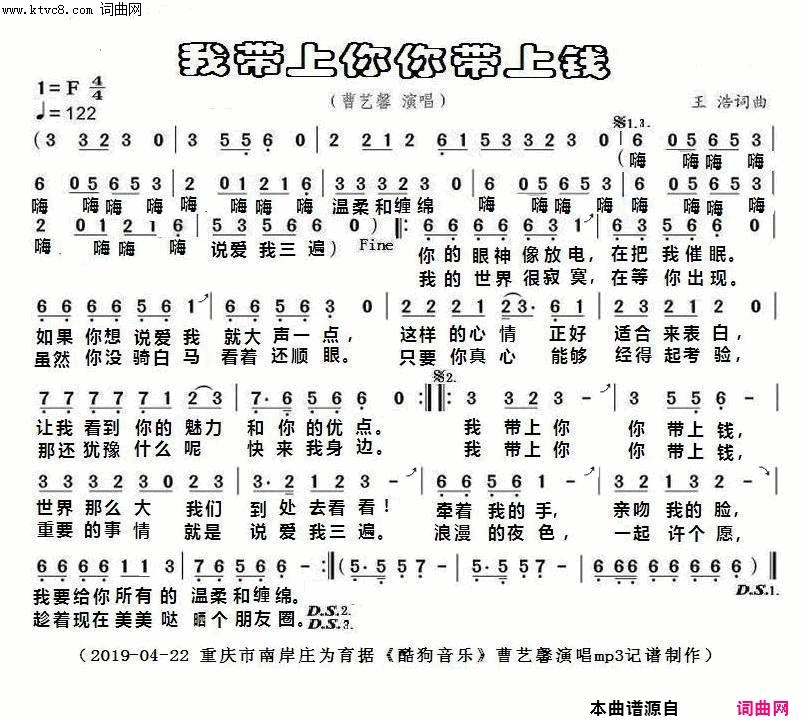 www.ktvc8.com 词曲网
我带上你你带上钱
1=F 4/4
♩=122
(曹艺馨 演唱)
王 浩词曲
𝄋1.3.
(3 3 2 3 0 | 3 5 5 6 0 | 2 2 1 2 2 | 6 1 5 3 3 2 3 3 0) | 6 0 5 6 5 3
(嗨 嗨嗨 嗨
6 0 5 6 5 3 | 2 0 1 2 1 6 | 2 3 2 3 2 3 | 6 0 5 6 5 3 | 6 0 5 6 5 3
嗨 嗨嗨 嗨 嗨 嗨嗨 嗨 温柔和缠绵 嗨 嗨嗨 嗨 嗨 嗨嗨 嗨
2 0 1 2 1 6 | 5 3 5 6 0) ‖: 6 6 6 6 6 3 1 | 3 2 5 6 6 0
嗨 嗨嗨 嗨 说爱我三遍) Fine 你的眼神像放电,在把我催眠。
我的世界很寂寞,在等你出现。
6 6 6 6 5 6 1 | 6 6 5 6 3 0 | 2 2 2 2 1 2 3· 6 0 | 2 1 2 1 2
如果你想说爱我 就大声一点, 这样的心情 正好 适合来表白,
虽然你没骑白马 看着还顺眼。 只要你真心 能够 经得起考验,
7 7 7 7 7 1 2 3 | 7· 6 5 5 6 0 :‖: 3 3 2 3 | 3 5 5 6
𝄋2.
让我看到你的魅力 和你的优点。 我 带上你 你 带上钱,
那还犹豫什么呢 快来我身边。 我 带上你 你 带上钱,
3 3 3 2 3 0 | 2 3 3 2 3 - | 6 6 5 6 - | 3 3 2 3 -
世界那么大 我们 到处去看看! 牵着我的手, 亲吻我的脸,
重要的事情 就是 说爱我三遍。 浪漫的夜色, 一起许个愿,
6 6 6 6 1 1 3 | 7 6 5 6 - :‖ (5· 5 5 7 - | 5· 5 5 7 - | 6 6 6 6 6 6 6 6)‖
D.S.1.
我要给你所有的 温柔和缠绵。
D.S.2.
趁着现在美美哒 晒个朋友圈。
D.S.3.
(2019-04-22 重庆市南岸庄为育据《酷狗音乐》曹艺馨演唱mp3记谱制作)
本曲谱源自 词曲网